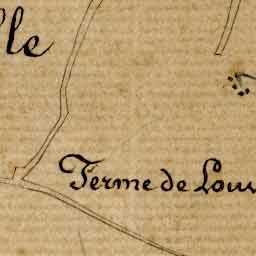 lle
Ferme de Louv